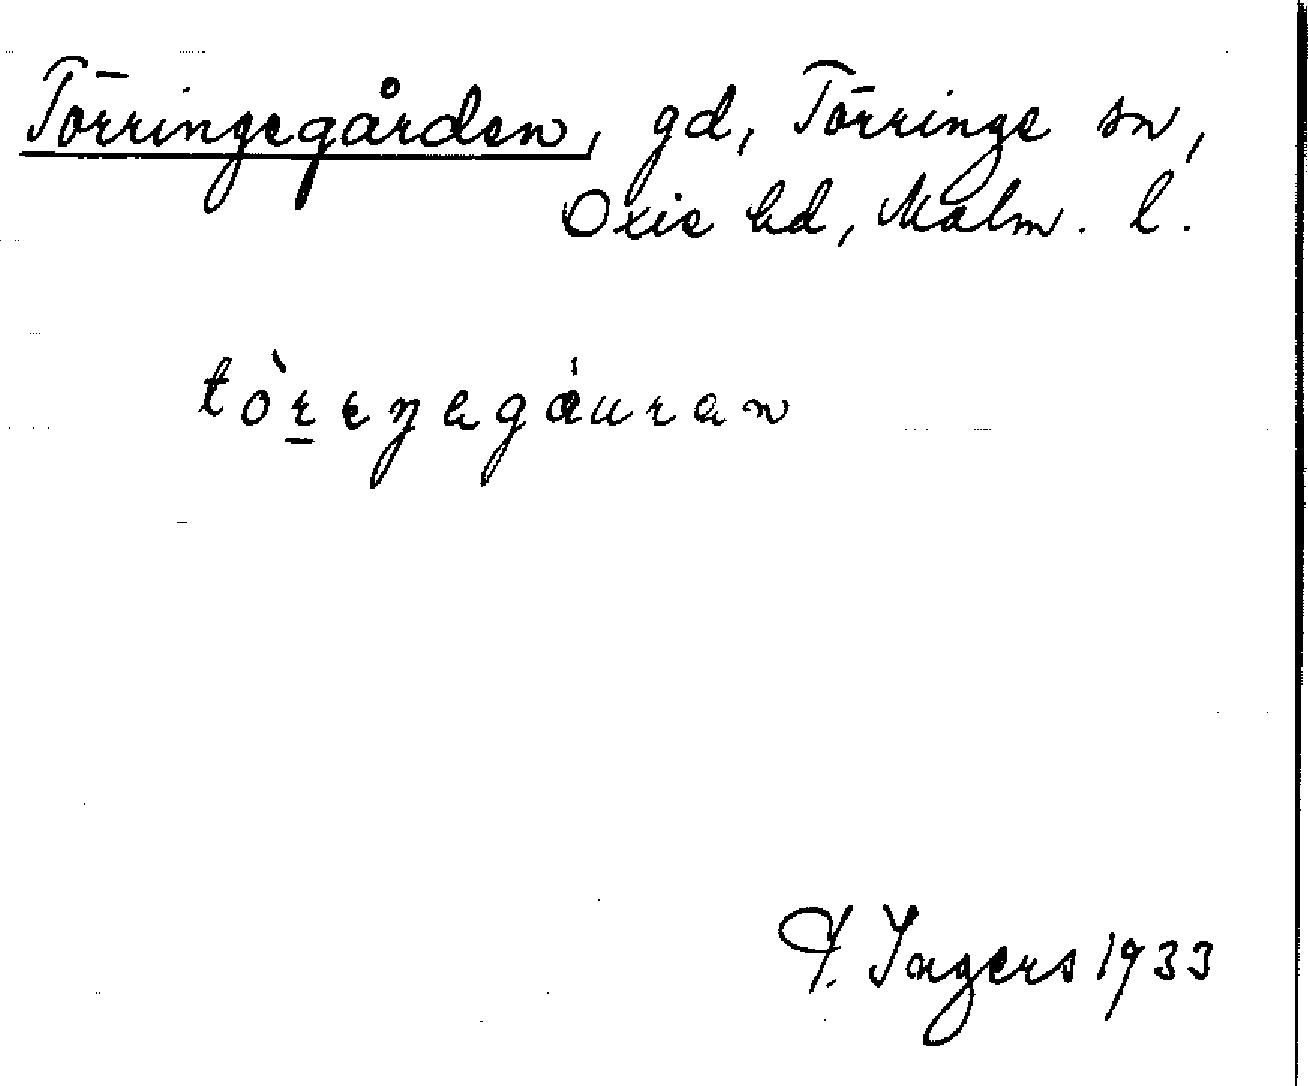 Törringegården, gd, Törringe sn,
Oxie hd, Malm. l.
tòr̲eŋagáuran
I. Ingers 1933